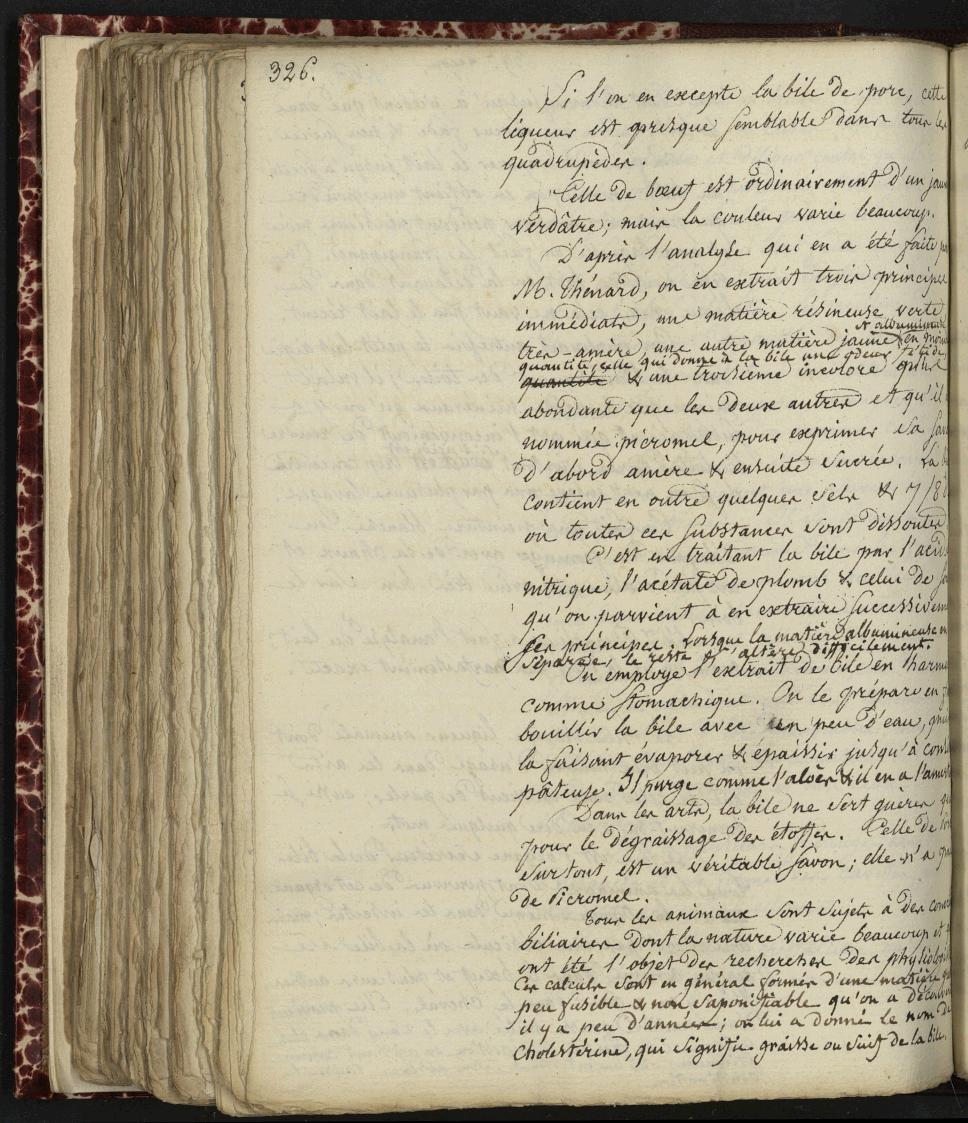 326.
Si l'on en excepte la bile de porc, cette
liqueur est presque semblable dans tous les
quadrupèdes.
Celle de bœuf est ordinairement d'un jau
verdâtre; mais la couleur varie beaucoup.
D'après l'analyse qui en a été faite p
M. Thénard, on en extrait trois principes
immédiats, une matière résineuse verte
et albumineuse
très-amère, une autre matière jaune en moin
quantité, celle qui donne à la bile une odeur fétide,
quantité & une troisième incolore plus
abondante que les deux autres et qu'il
nommée picromel, pour exprimer sa sav
d'abord amère & ensuite sucrée. La b
contient en outre quelques sels & 7/8 d
où toutes ces substances sont dissoutes
C'est en traitant la bile par l'acid
nitrique, l'acétate de plomb & celui de
qu'on parvient à en extraire successivem
ses principes. Lorsque la matière albumineuse en
séparée, le reste s'altère difficilement.
On employe l'extrait de bile en pharm
comme stomachique. On le prépare en f
bouillir la bile avec un peu d'eau, pui
la faisant évaporer & épaissir jusqu'à cons
pâteuse. Il purge comme l'aloès & il en a l'amert
Dans les arts, la bile ne sert guères q
pour le dégraissage des étoffes. Celle de
surtout, est un véritable savon; elle n'a p
de Picromel.
Tous les animaux sont sujets à des conc
biliaires dont la nature varie beaucoup et
ont été l'objet des recherches des physiologi
Ces calculs sont en général formés d'une matière
peu fusible & non saponifiable qu'on a découv
il y a peu d'années; on lui a donné le nom de
Cholestérine, qui signifie graisse ou suif de la bile.